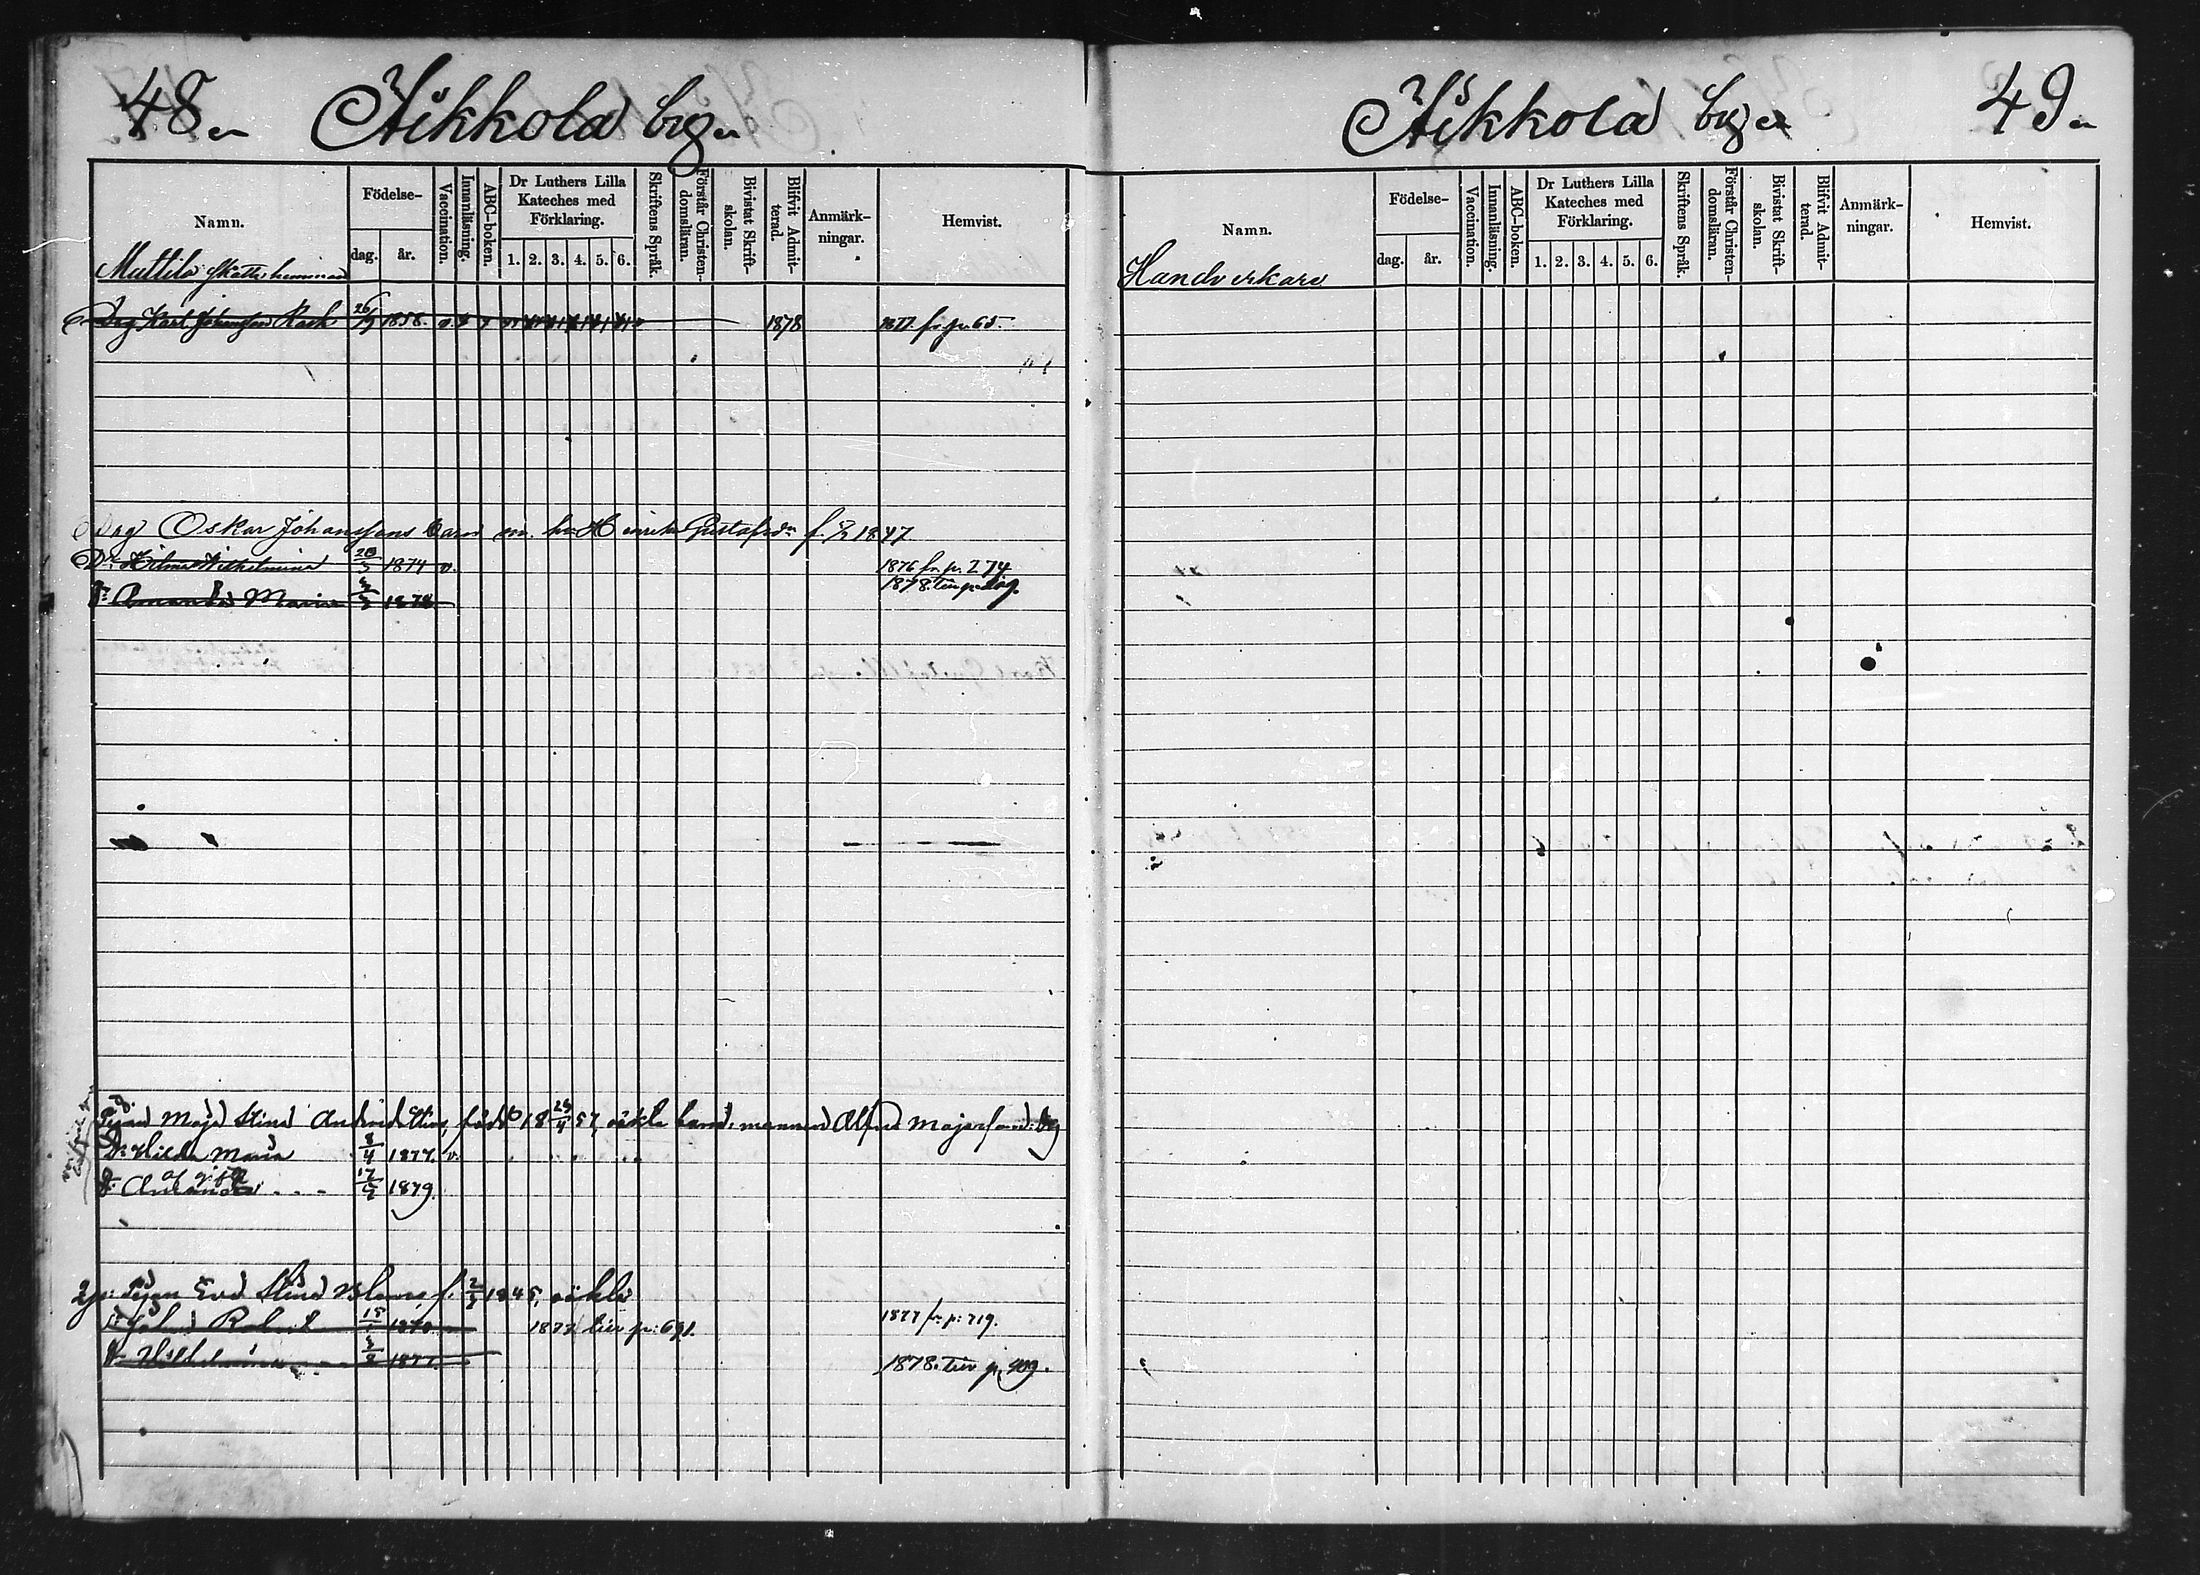 48.
Äikkola by.
Namn.
Födelse-
dag.
år.
Vaccination.
Innanläsning.
ABC-boken.
Dr Luthers Lilla
Kateches med
Förklaring.
1. 2. 3. 4. 5. 6.
Skriftens Språk.
Förstår Christen-
domsläran.
Bivistat Skrift-
skolan.
Blifvit Admit-
terad.
Anmärk-
ningar.
Hemvist.
Mattila Skatte hemman
Drg Karl Johansson 1858. 1878 1877 fr. p. 65.
Drg Oskar Johanssons barn m. h. Henrika Gustafsdr f. 1847
Dr Hilma Wilhelmina 20/5 1874 v. 1876 fr. p. 274
1878
Dr Amanda Maria 1878
Pigan Maja Stina f. 18 26/4 57, oäkta barn, mannen Alfred
Dr Hilda Maria 8/4 1877. v.
Dr Amanda 1879.
Pigan Eva Stina f. 1845, oäkta
Johan Robert 1870 1877 till p: 691. 1877 fr. p: 719.
Dr Wilhelmina 1877. 1878. till p. 909.
Äikkola by
49.
Namn.
Födelse-
dag.
år.
Vaccination.
Innanläsning.
ABC-boken.
Dr Luthers Lilla
Kateches med
Förklaring.
1. 2. 3. 4. 5. 6.
Skriftens Språk.
Förstår Christen-
domsläran.
Bivistat Skrift-
skolan.
Blifvit Admit-
terad.
Anmärk-
ningar.
Hemvist.
Handverkare